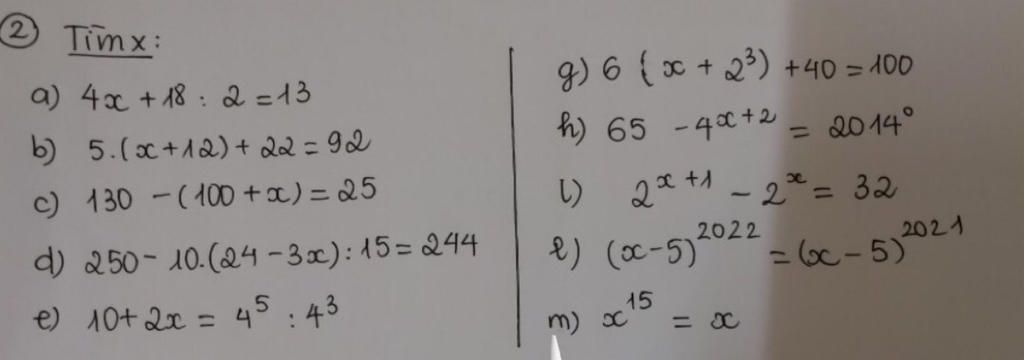 ② Tìm x:
a) 4x + 18 : 2 = 13
b) 5.(x+12) + 22 = 92
c) 130 - (100 + x) = 25
d) 250 - 10.(24 - 3x) : 15 = 244
e) 10 + 2x = 4⁵ : 4³
g) 6 (x + 2³) + 40 = 100
h) 65 - 4ˣ⁺² = 2014⁰
i) 2ˣ⁺¹ - 2ˣ = 32
l) (x-5)²⁰²² = (x-5)²⁰²¹
m) x¹⁵ = x